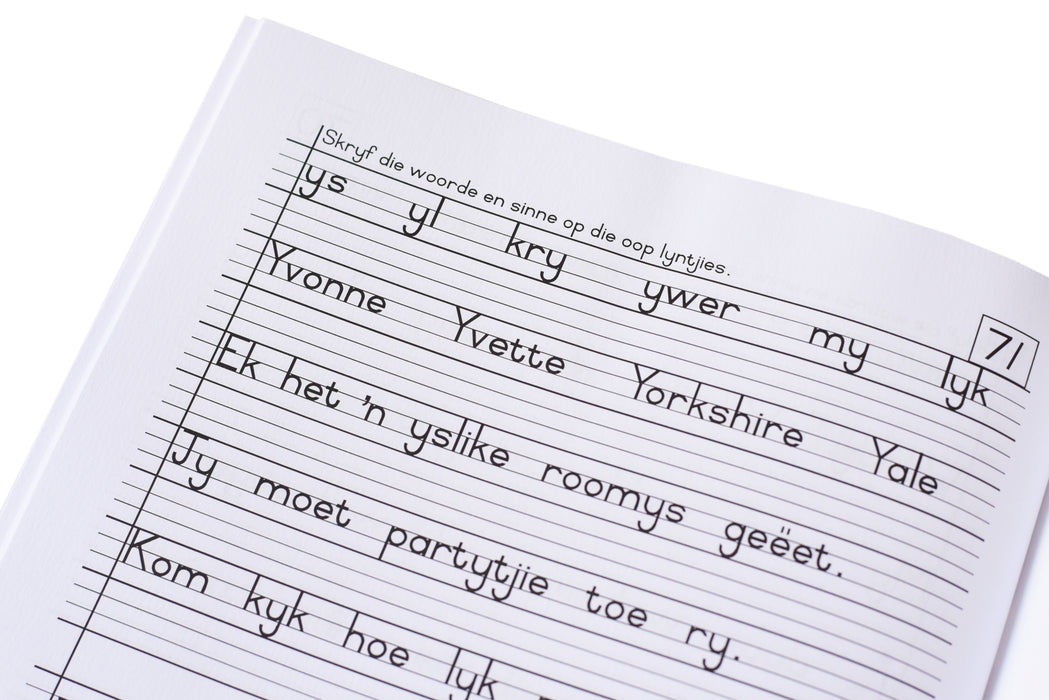 Skryf die woorde en sinne op die oop lyntjies.
71
ys yl kry ywer my lyk
Yvonne Yvette Yorkshire Yale
Ek het 'n yslike roomys geëet.
Jy moet partytjie toe ry.
Kom kyk hoe lyk